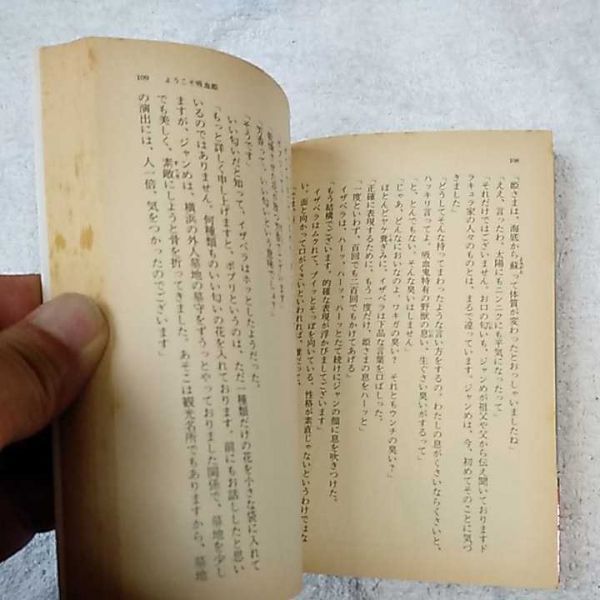 108
「姫さまは、海底から蘇って体質が変わったとおっしゃいましたね」
「ええ、言ったわ。太陽にもニンニクにも平気になったって」
「それだけではございません。お口の匂いも、ジャンめが祖父や父から伝え聞いておりますド
ラキュラ家の人々のものとは、まるで違っています。ジャンめは、今、初めてそのことに気づ
きました」
「ずいぶん、持ってまわったような言い方をするのう。わたしの息がくさいならくさいと、
ハッキリ言ってよ。吸血鬼特有の野獣の臭い、生ぐさい臭いがするって」
「と、とんでもない。そんな臭いはしません」
「じゃあ、どんなにおいなのよ。ワキガの臭い? それともウンチの臭い?」
ほとんどヤケ糞ぎみに、イザベラは下品な言葉を口ばしった。
「正確に表現するために、もう一度だけ、姫さまの息をハーッと」
「一度といわず、百回でも二百回でもかけてあげる」
イザベラは、ハーッ、ハーッ、ハーッとたて続けにジャンの顔に息を吹きつけた。
「もう結構でございます。的確な表現が浮かびましてございます」
イザベラはムクれて、プイッとそっぽを向いている。性格が素直じゃないというわけではな
い。面と向かって口がくさいといわれれば、
109 ようこそ吸血姫
「芳香って、いい匂いという意味でしょ」
「そうです」
いい匂いだと知って、イザベラはホッとしたようだった。
「もっと詳しく申し上げますと、ポプリというのは、ただ一種類だけの花を小さな袋に入れて
いるのではありません。何種類ものいい匂いの花を入れております。前にもお話ししたと思い
ますが、ジャンめは、横浜の外人墓地の墓守をずうっとやっておりました関係で、墓地を少し
でも美しく、素敵にしようと骨を折ってきました。あそこは観光名所でもありますから、墓地
の演出には、人一倍、気をつかったのでございます」